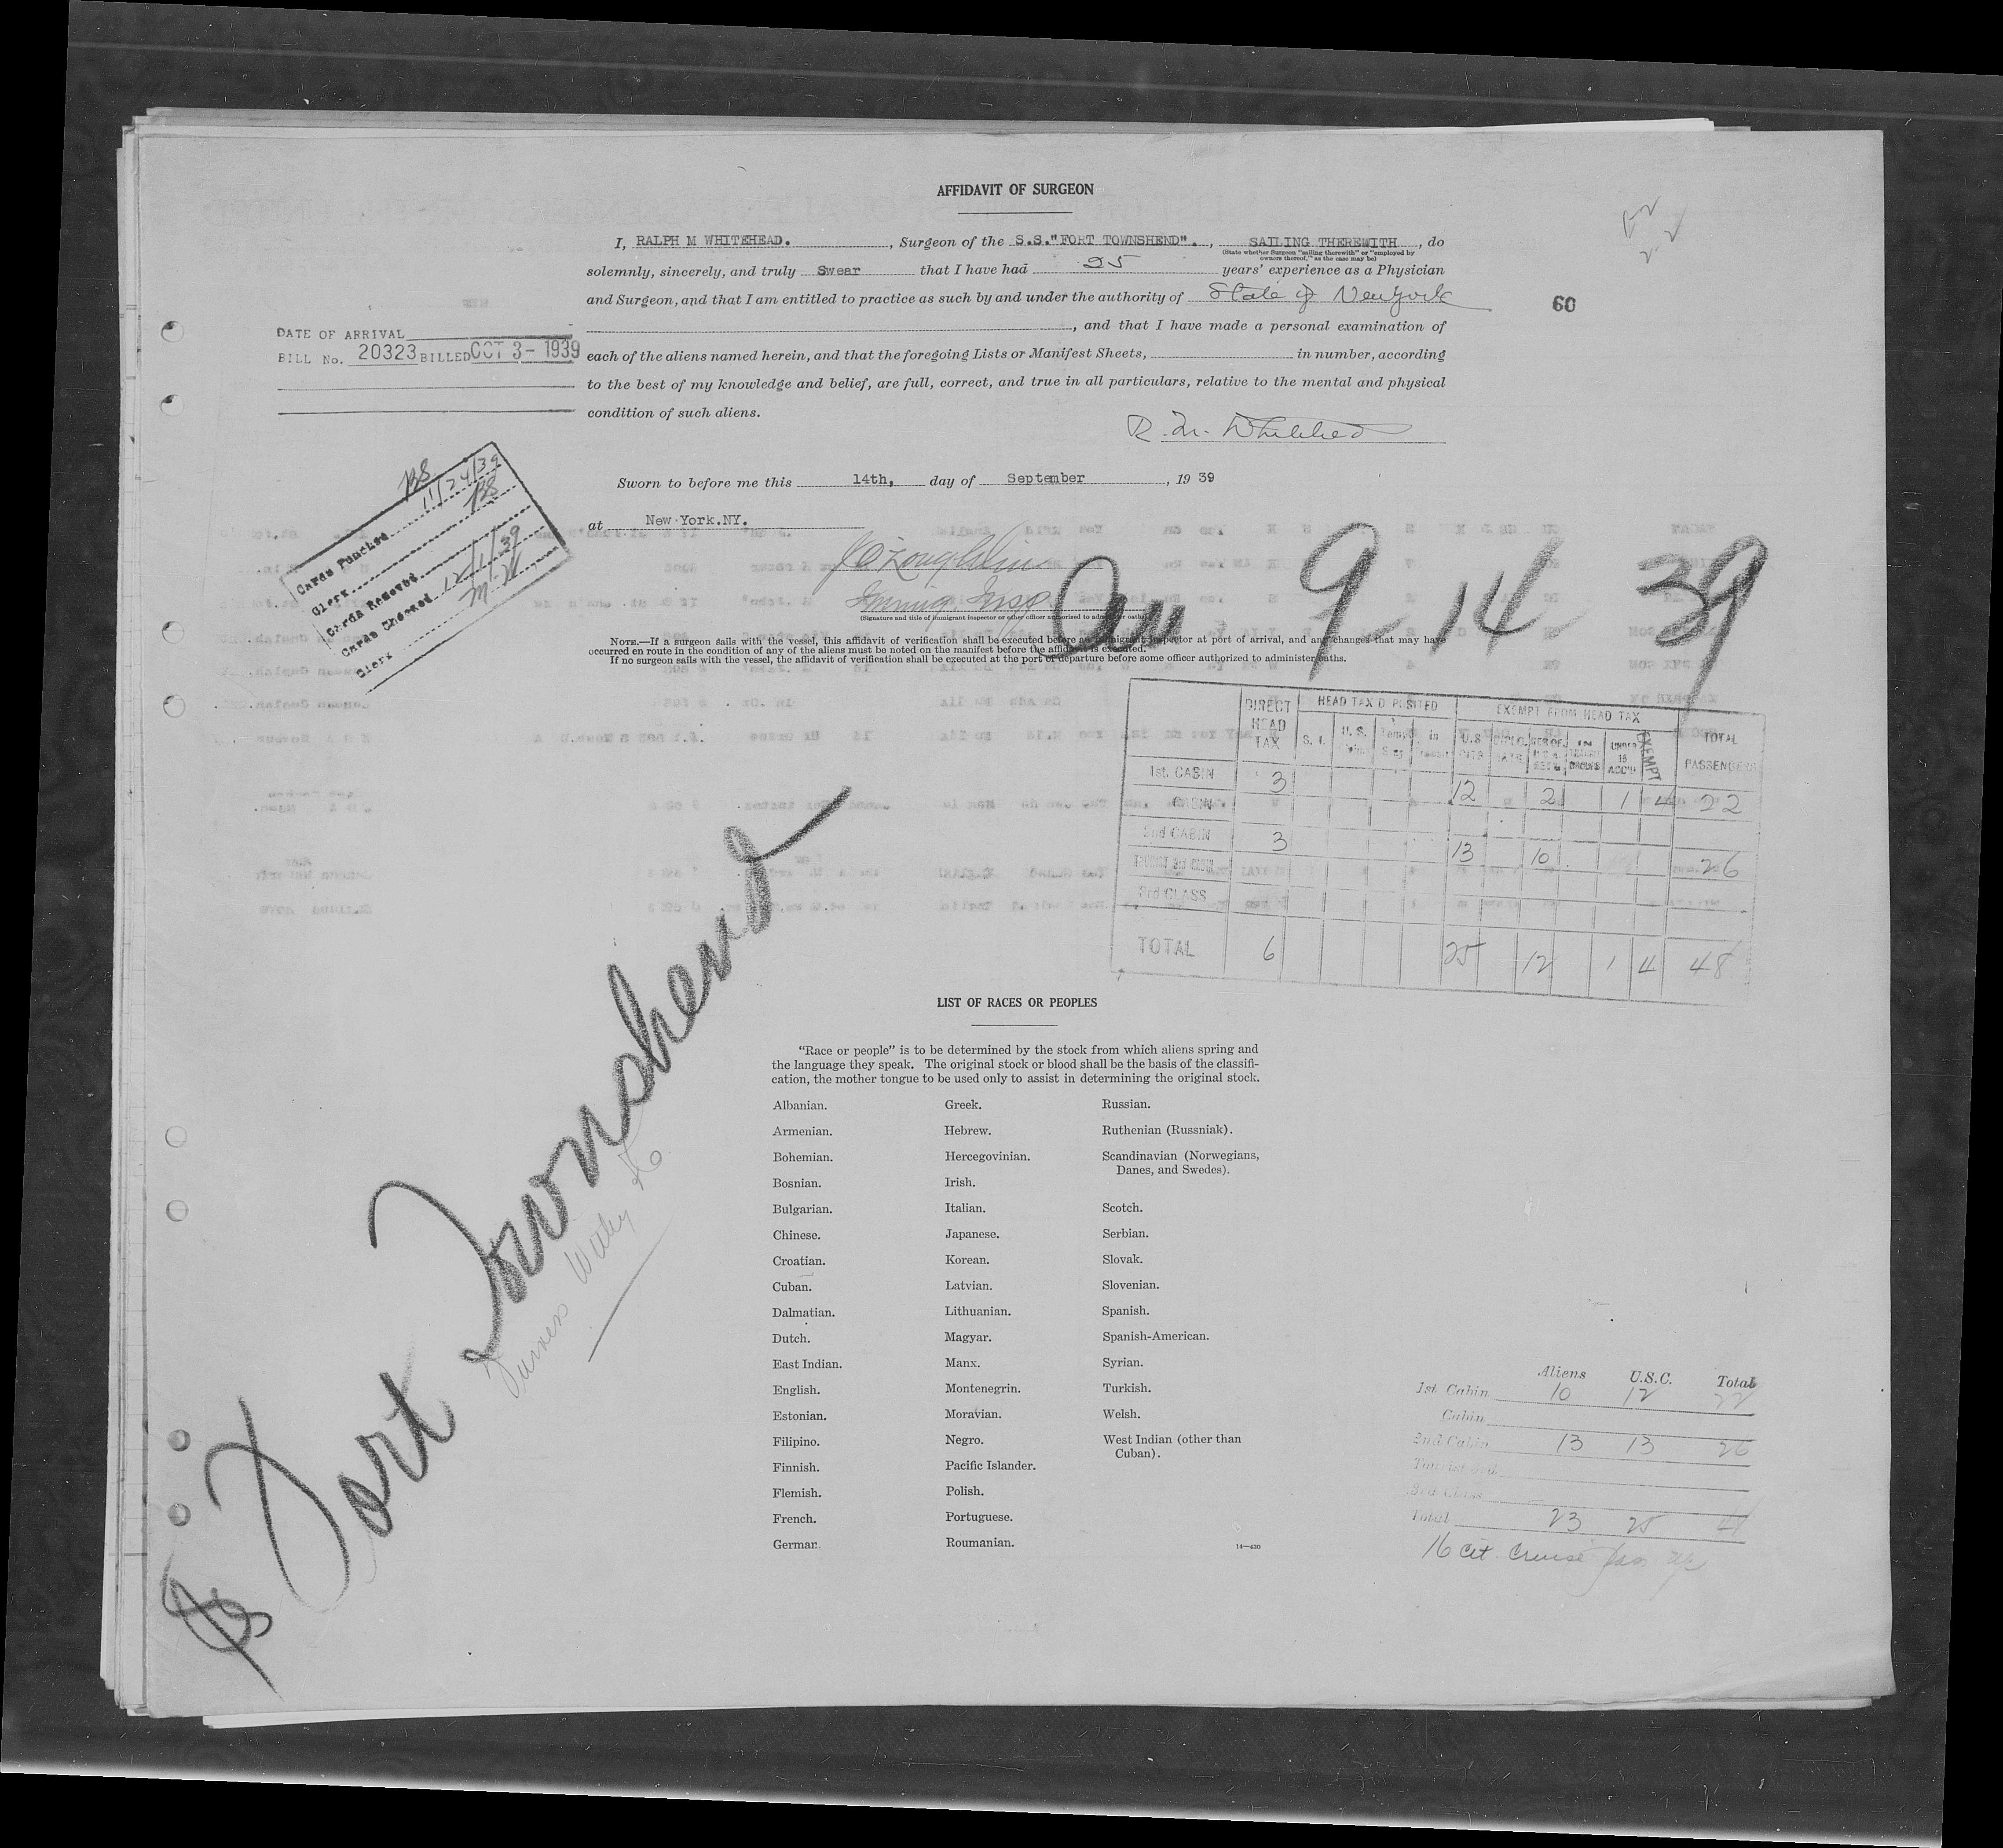 AFFIDAVIT OF SURGEON
I, RALPH M WHITEHEAD. , Surgeon of the S.S."FORT TOWNSHEND". , SAILING THEREWITH , do
(State whether Surgeon "sailing therewith" or "employed by
owners thereof," as the case may be)
solemnly, sincerely, and truly Swear that I have had 25 years' experience as a Physician
and Surgeon, and that I am entitled to practice as such by and under the authority of State of New York
, and that I have made a personal examination of
each of the aliens named herein, and that the foregoing Lists or Manifest Sheets, in number, according
to the best of my knowledge and belief, are full, correct, and true in all particulars, relative to the mental and physical
condition of such aliens.
60
DATE OF ARRIVAL
BILL No. 20323 BILLED OCT 3- 1939
R. M. Whitehead
Sworn to before me this 14th, day of September , 19 39
at New York.NY.
Immig. Insp.
(Signature and title of immigrant inspector or other officer authorized to administer oaths)
9-14 39
NOTE.—If a surgeon sails with the vessel, this affidavit of verification shall be executed before an immigrant inspector at port of arrival, and any changes that may have
occurred en route in the condition of any of the aliens must be noted on the manifest before the affidavit is executed.
If no surgeon sails with the vessel, the affidavit of verification shall be executed at the port of departure before some officer authorized to administer oaths.
BS
Cards Punched 11/24/39
Clerk BS
Cards Removed
Cards Checked 12/1/39
Clerk
DIRECT HEAD TAX
HEAD TAX DEPOSITED
EXEMPT FROM HEAD TAX
TOTAL PASSENGERS
S. I.
U.S. CITS
UNDER 16 ACC'D
EXEMPT
1st. CABIN 3 12 2 1 4 22
CABIN
2nd CABIN 3 13 10 26
TOURIST 3rd CABIN
3rd CLASS
TOTAL 6 25 12 1 4 48
SS Fort Townshend
Furness Withy Co.
LIST OF RACES OR PEOPLES
"Race or people" is to be determined by the stock from which aliens spring and
the language they speak. The original stock or blood shall be the basis of the classifi-
cation, the mother tongue to be used only to assist in determining the original stock.
Albanian. Greek. Russian.
Armenian. Hebrew. Ruthenian (Russniak).
Bohemian. Hercegovinian. Scandinavian (Norwegians,
Danes, and Swedes).
Bosnian. Irish.
Bulgarian. Italian. Scotch.
Chinese. Japanese. Serbian.
Croatian. Korean. Slovak.
Cuban. Latvian. Slovenian.
Dalmatian. Lithuanian. Spanish.
Dutch. Magyar. Spanish-American.
East Indian. Manx. Syrian.
English. Montenegrin. Turkish.
Estonian. Moravian. Welsh.
Filipino. Negro. West Indian (other than
Cuban).
Finnish. Pacific Islander.
Flemish. Polish.
French. Portuguese.
German. Roumanian.
14—430
Aliens U.S.C. Total
1st. Cabin 10 12 22
Cabin
2nd Cabin 13 13 26
Tourist 3rd
3rd Class
Total 23 25
16 Cit. Cruise